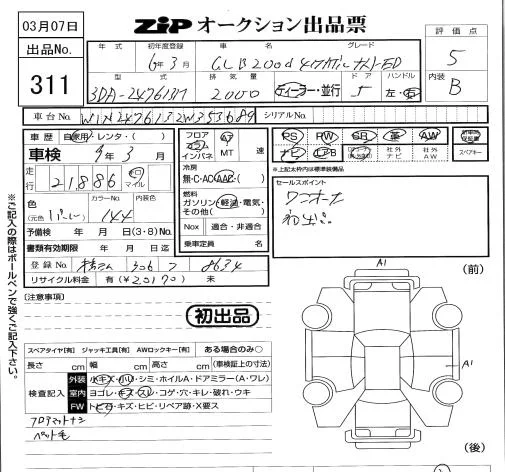 03月07日
ZIP オークション出品票
出品No.
311
年式 初年度登録 車名 グレード
6年3月 GLB200d 4マチック
型式 排気量 ドア ハンドル
3DA-247613M 2000 ディーラー・並行 5 左・右
評価点
5
内装
B
車台No. W1N2476132W353689 シリアルNo.
車歴 自家用・レンタ・( )
車検 9年3月
走行 21886 km マイル
色 カラーNo. 内装色
(元色 ) 144
予備検 年 月 日(3・8)No.
書類有効期限 年 月 日迄
登録No. 306 8634
リサイクル料金 有(¥20170) 未
フロア コラム インパネ AT MT 速
冷房 無・C・AC・AAC・( )
燃料 ガソリン・軽油・電気・その他( )
Nox 適合・非適合
乗車定員 名
PS PW SR 革 AW
ナビ 社外ナビ 社外AW
スペアキー
※上記太枠内は標準装備品
セールスポイント
ワンオーナー
初出品
※ご記入の際はボールペンで強くご記入下さい。
[注意事項]
初出品
スペアタイヤ[有] ジャッキ工具[有] AWロックキー[有] ある場合のみ○
長さ cm 幅 cm 高さ cm (車検証上の寸法)
検査記入
外装 小キズ・小凹・シミ・ホイルA・ドアミラー(A・ワレ)
室内 ヨゴレ・キズ・スレ・コゲ・穴・キレ・破れ・ウキ
FW トビ石・キズ・ヒビ・リペア跡・X要ス
フロアマットナシ
ペット毛
(前)
A1
A1
(後)